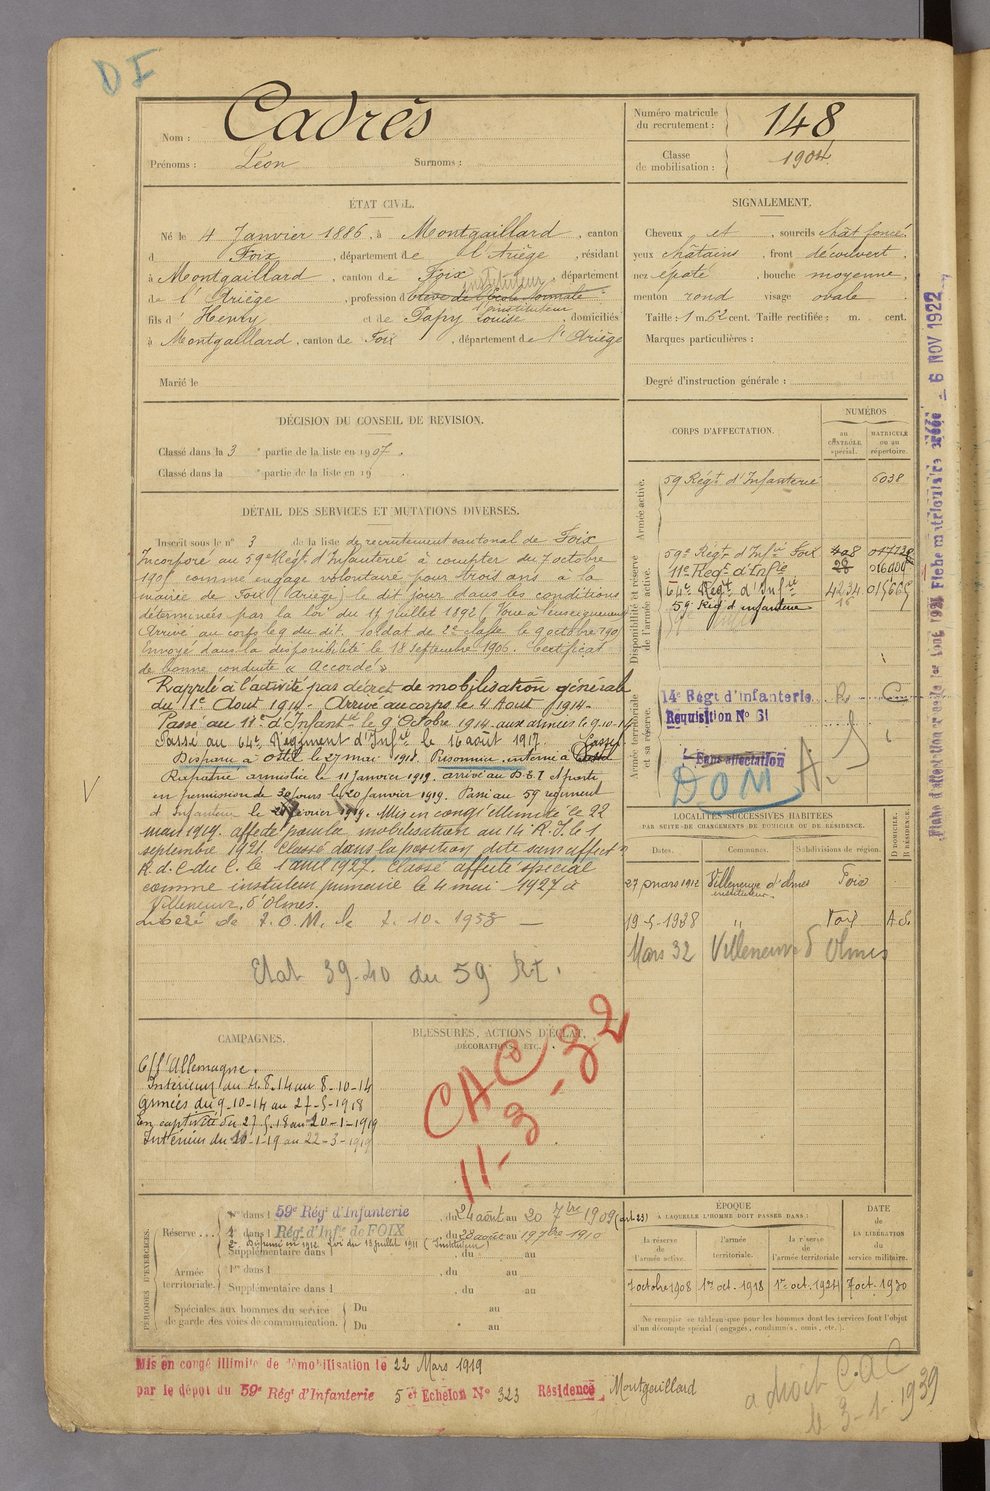 D I
Nom : Cadrès
Prénoms : Léon Surnoms :
Numéro matricule du recrutement : 148
Classe de mobilisation : 1904
ÉTAT CIVIL.
Né le 4 Janvier 1886, à Montgaillard, canton
d Foix, département de l'Ariège, résidant
à Montgaillard, canton de Foix instituteur département
de l'Ariège, profession d'élève de l'école normale
d'instituteur
fils d' Henry et de Papy Louise domiciliés
à Montgaillard, canton de Foix, département de l'Ariège
Marié le
SIGNALEMENT.
Cheveux et, sourcils chât foncé.
yeux châtains, front découvert,
nez épaté, bouche moyenne,
menton rond visage ovale.
Taille : 1 m. 62 cent. Taille rectifiée : m. cent.
Marques particulières :
Degré d'instruction générale :
DÉCISION DU CONSEIL DE REVISION.
Classé dans la 3e partie de la liste en 1907.
Classé dans la e partie de la liste en 19
DÉTAIL DES SERVICES ET MUTATIONS DIVERSES.
Inscrit sous le n° 3 de la liste de recrutement cantonal de Foix
Incorporé au 59e Régt d'Infanterie à compter du 7 octobre
190 comme engagé volontaire pour trois ans à la
mairie de Foix (Ariège) le dit jour dans les conditions
déterminées par la loi du 11 juillet 1892 (Voué à l'enseignement
Arrivé au corps le 9 du dit. Soldat de 2e classe le 9 octobre 190
Envoyé dans la disponibilité le 18 Septembre 1906. Certificat
de bonne conduite « Accordé »
Rappelé à l'activité par décret de mobilisation générale
du 1er Août 1914. Arrivé au corps le 4 Août 1914.
Passé au 11e d'Infantie le 9 Octobre 1914. aux armées le 9.10.14
Passé au 64e Régiment d'Infie le 16 août 1917.
Disparu à Ostel le 27 mai 1918. Prisonnier interné à Cassel
Rapatrié armistice le 11 Janvier 1919. arrivé au D.E.I et parti
en permission de 30 jours le 20 janvier 1919. Passé au 59 régiment
d'Infanterie le février 1919. Mis en congé illimité le 22
mars 1919. affecté pour la mobilisation au 14 R.I. le 1
septembre 1921. Classé dans la position dite sans affectn
R. d. c. du C. le 1 avril 1927. Classé affecté spécial
comme instituteur primaire le 4 mai 1927 à
Villeneuve d'Olmes.
Libéré de S.O.M. le
Etat 39-40 du 59 RI.
CORPS D'AFFECTATION.
NUMÉROS
au CONTRÔLE spécial.
MATRICULE ou au répertoire.
Armée active.
59 Régt d'Infanterie 6038
Disponibilité et réserve de l'armée active.
59e Régt d'Infie Foix 408 017128
11e Régt d'Infie 28 016000
64e Régt d'Infie 4234 015665
59e Rég d'infanterie 16
Armée territoriale et sa réserve.
14e Régt d'infanterie. R C
Réquisition N° 31
Sans affectation
DOM A.S
Fiche matriculaire 6 NOV 1922
LOCALITÉS SUCCESSIVES HABITÉES
PAR SUITE DE CHANGEMENTS DE DOMICILE OU DE RÉSIDENCE.
Dates. Communes. Subdivisions de région. D DOMICILE. R RÉSIDENCE
27 mars 1912 Villeneuve d'Olmes instituteur. Foix
19-5-1928 " Foix A.S.
Mars 32 Villeneuve d'Olmes
CAMPAGNES.
C/ l'Allemagne.
Intérieur du 4.8.14 au 8-10-14
Armées du 9-10-14 au 27-5-1918
En captivité du 27.5.18 au 20-1-1919
Intérieur du 20-1-19 au 22-3-1919
BLESSURES, ACTIONS D'ÉCLAT,
DÉCORATIONS, ETC.
CAC
11-3-32
PÉRIODES D'EXERCICES.
Réserve 1re dans l 59e Régt d'Infanterie. du 24 août au 20 7bre 1909 (art 23)
2e dans l Régt d'Infie de FOIX du 28 août au 19 7bre 1910
Supplémentaire dans l du au
Armée territoriale. 1re dans l du au
Supplémentaire dans l du au
Spéciales aux hommes du service de garde des voies de communication. Du au
Du au
ÉPOQUE
À LAQUELLE L'HOMME DOIT PASSER DANS :
la réserve de l'armée active
l'armée territoriale.
la réserve de l'armée territoriale
DATE de LA LIBÉRATION du service militaire.
7 octobre 1908 1er oct. 1918 1er oct. 1924 7 oct. 1930
Ne remplir ce tableau que pour les hommes dont les services font l'objet
d'un décompte spécial (engagés, condamnés, omis, etc.).
Mis en congé illimité de démobilisation le 22 Mars 1919
par le dépôt du 59e Régt d'Infanterie 5e Echelon N° 323 Résidence Montgaillard
a droit C.A.C
le 3-1-1939